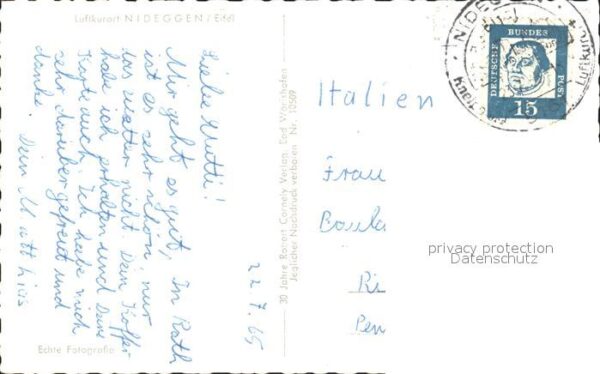 Luftkurort NIDEGGEN / Eifel
Liebe Mutti!
Mir geht es gut, In Rath
ist es sehr schön, nur
das wetter nicht. Dein Koffer
habe ich erhalten und Deine
Karte auch. Ich habe mich
sehr darüber gefreut und
danke. Dein Matthias
22.7.65
Echte Fotografie
30 Jahre Rorort Cornely Verlag, Bad Wörishofen
Jeglicher Nachdruck verboten Nr. 10509
NIDEG
Luftkur
DEUTSCHE BUNDES POST
15
Italien
Frau
privacy protection
Datenschutz
Ri